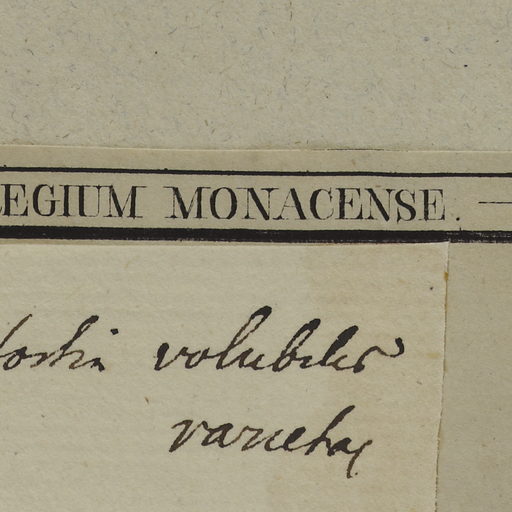 EGIUM MONACENSE.
volubilis
varietas